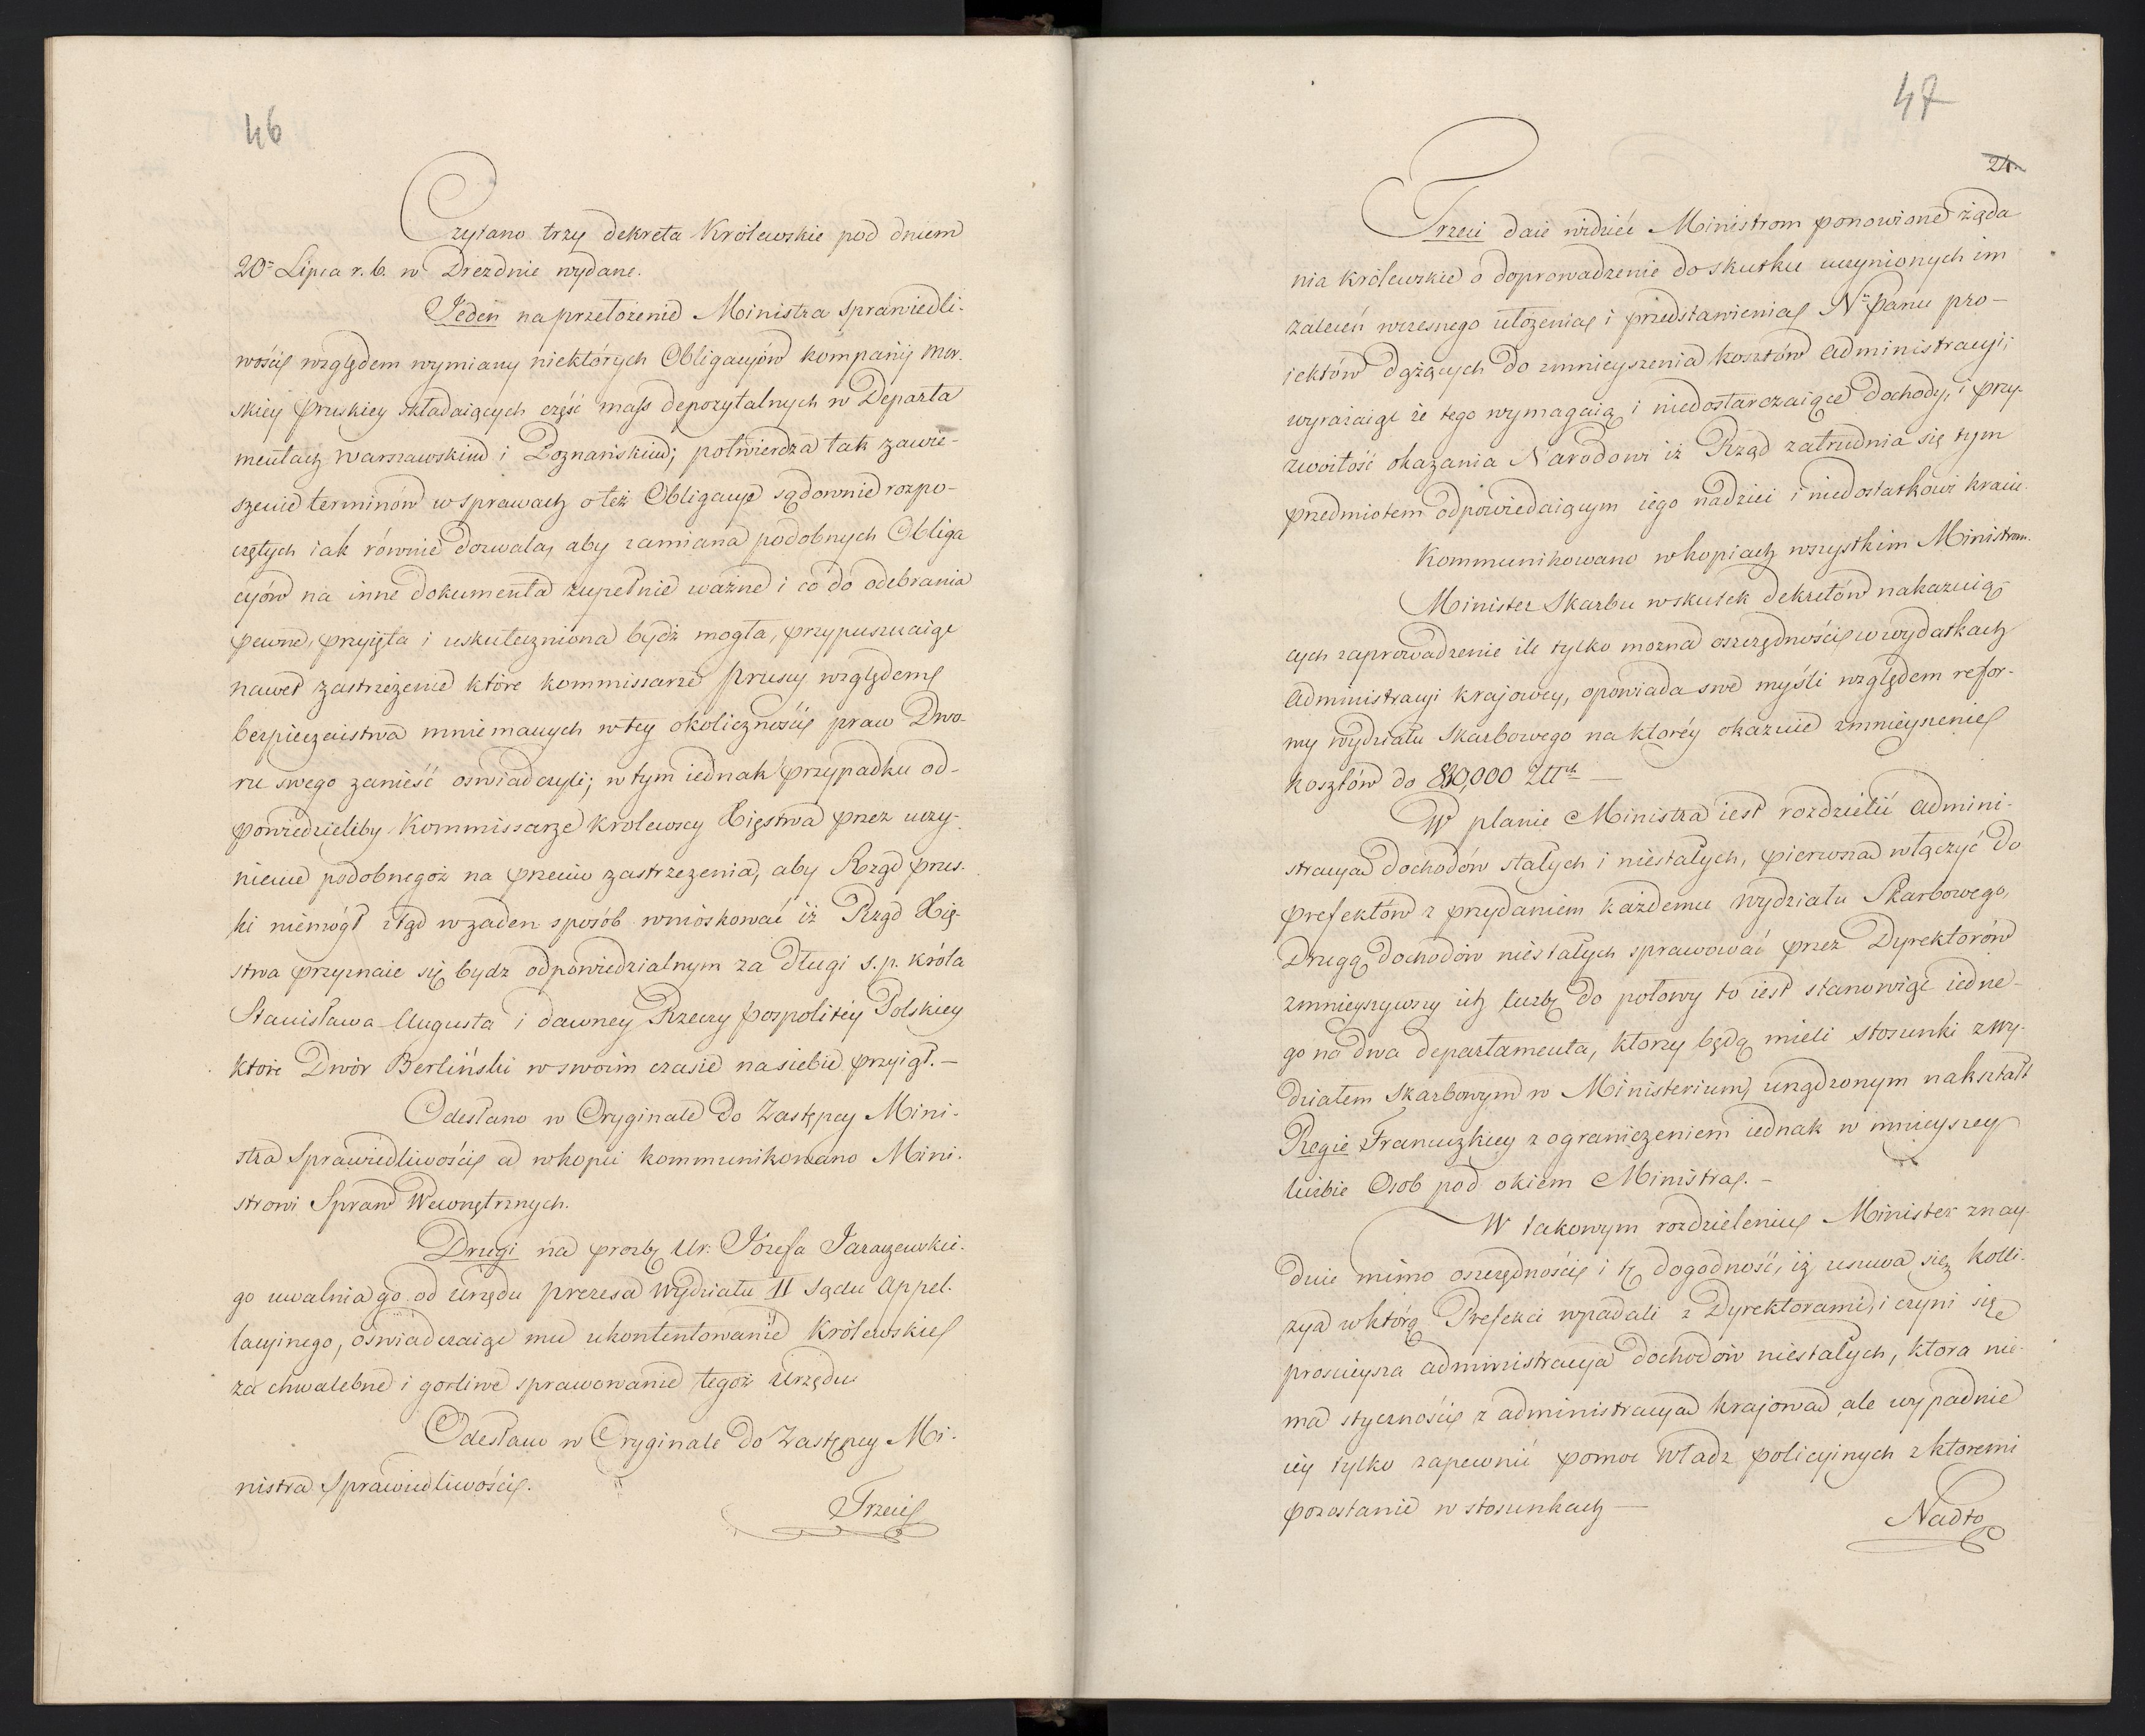 46
Czytano trzy dekreta Królewskie pod dniem
20º Lipca r. b. w Dreznie wydane.
Jeden na przełożenie Ministra Sprawiedli-
wości względem wymiany niektórych Obligacyów kompanij mor-
skiey pruskiey składaiących część mass depozytalnych w Departa
mentach Warszawskim i Poznańskim; potwierdza tak zawie-
szenie terminów w sprawach o też Obligacye sądownie rozpo-
czętych iak równie dozwala, aby zamiana podobnych Obliga
cyów na inne dokumenta zupełnie ważne i co do odebrania
pewne, przyięta i uskuteczniona bydź mogła, przypuszczaiąc
nawet zastrzeżenie które kommissarze pruscy względem
bezpieczeństwa mniemanych w tey okoliczności praw Dwo-
ru swego zanieść oświadczyli; w tym iednak przypadku od-
powiedzieliby Kommissarze Królewscy Xięstwa przez uczy-
nienie podobnegoż na przeciw zastrzeżenia, aby Rząd prus-
ki niemógł ztąd w żaden sposób wnioskować iż Rząd Xię-
stwa przyznaie się bydz odpowiedzialnym za długi s. p. króla
Stanisława Augusta i dawney Rzeczy pospolitéy Polskiey
które Dwór Berliński w swoim czasie na siebie przyiął. —
Odesłano w Oryginale do Zastępcy Mini-
stra Sprawiedliwości a w kopii kommunikowano Mini-
strowi Spraw Wewnętrznych.
Drugi na prozbę Ur: Józefa Jaraczewskie-
go uwalnia go od Urzędu prezesa Wydziału II Sądu Appel-
lacyinego, oświadczaiąc mu ukontentowanie Królewskie
za chwalebne i gorliwe sprawowanie tegoż Urzędu
Odesłano w Oryginale do Zastępcy Mi-
nistra Sprawiedliwości.
Trzeci
47
24.
Trzeci daie widzieć Ministrom ponowione żąda
nia królewskie o doprowadzenie do skutku uczynionych im
zaleceń wczesnego ułożenia i przedstawienia N. Panu pro-
iektów dążących do zmnieyszenia kosztów Administracyi;
wyrażaiąc że tego wymagaią i niedostarczaiące dochody, i przy-
zwoitość okazania Narodowi iż Rząd zatrudnia się tym
przedmiotem odpowiedaiącym iego nadziei i niedostatkowi kraiu.
Kommunikowano w kopiach wszystkim Ministrom.
Minister Skarbu wskutek dekretów nakazuią-
cych zaprowadzenie ile tylko można oszczędności w wydatkach
Administracyi krajowey, opowiada swe myśli względem refor-
my wydziału Skarbowego na któréy okazuie zmnieyszenie
kosztów do 830,000 Złtch —
W planie Ministra iest rozdzielić admini-
stracyą dochodów stałych i niestałych, pierwszą włączyć do
prefektów z przydaniem każdemu wydziału Skarbowego,
Drugą dochodów niestałych sprawować przez Dyrektorów
zmnieyszywszy ich liczbę do połowy to iest stanowiąc iedne-
go na dwa departamenta, którzy będą mieli stosunki z Wy-
działem Skarbowym w Ministerium urządzonym nakształt
Regie Francuzkiey z ograniczeniem iednak w mnieyszey
liczbie Osob pod okiem Ministra. —
W takowym rozdzieleniu Minister znay-
duie mimo oszczędności i tę dogodność, iż usuwa się kolli-
zya w którą Prefekci wpadali z Dyrektorami, i czyni się
prościeysza administracya dochodów niestałych, ktora nie-
ma styczności z administracyą krajową ale wypadnie
iey tylko zapewnić pomoc Władz policyinych z któremi
pozostanie w stosunkach —
Nadto